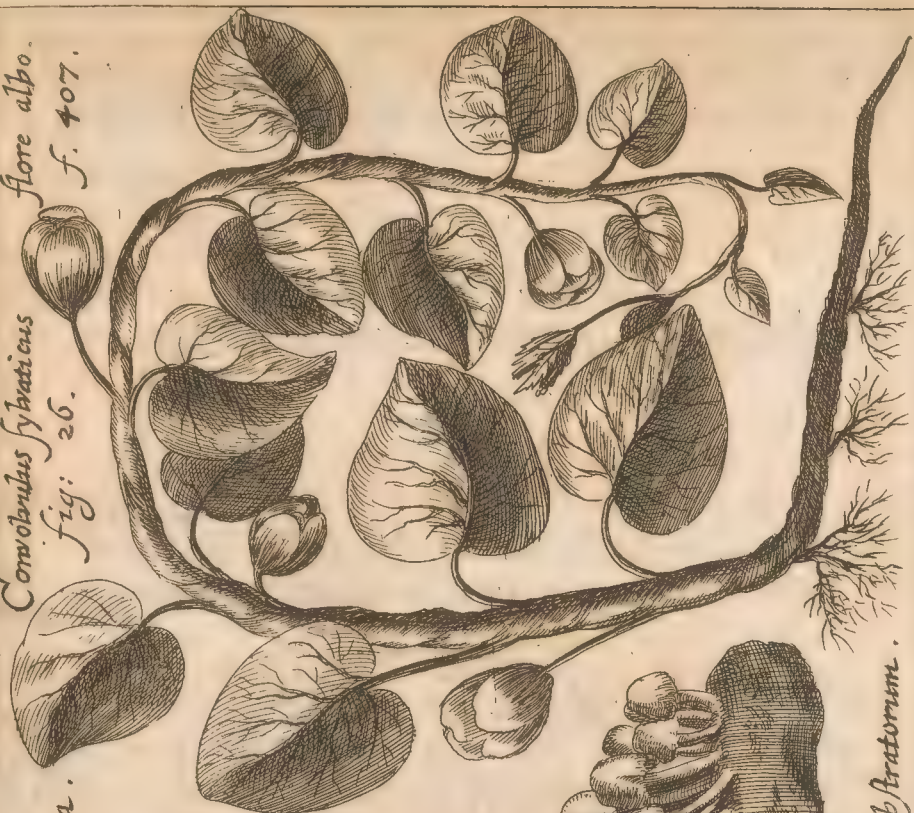 Convolvulus ſylvaticus flore albo.
fig: 26. f. 407.
bſtratorum.